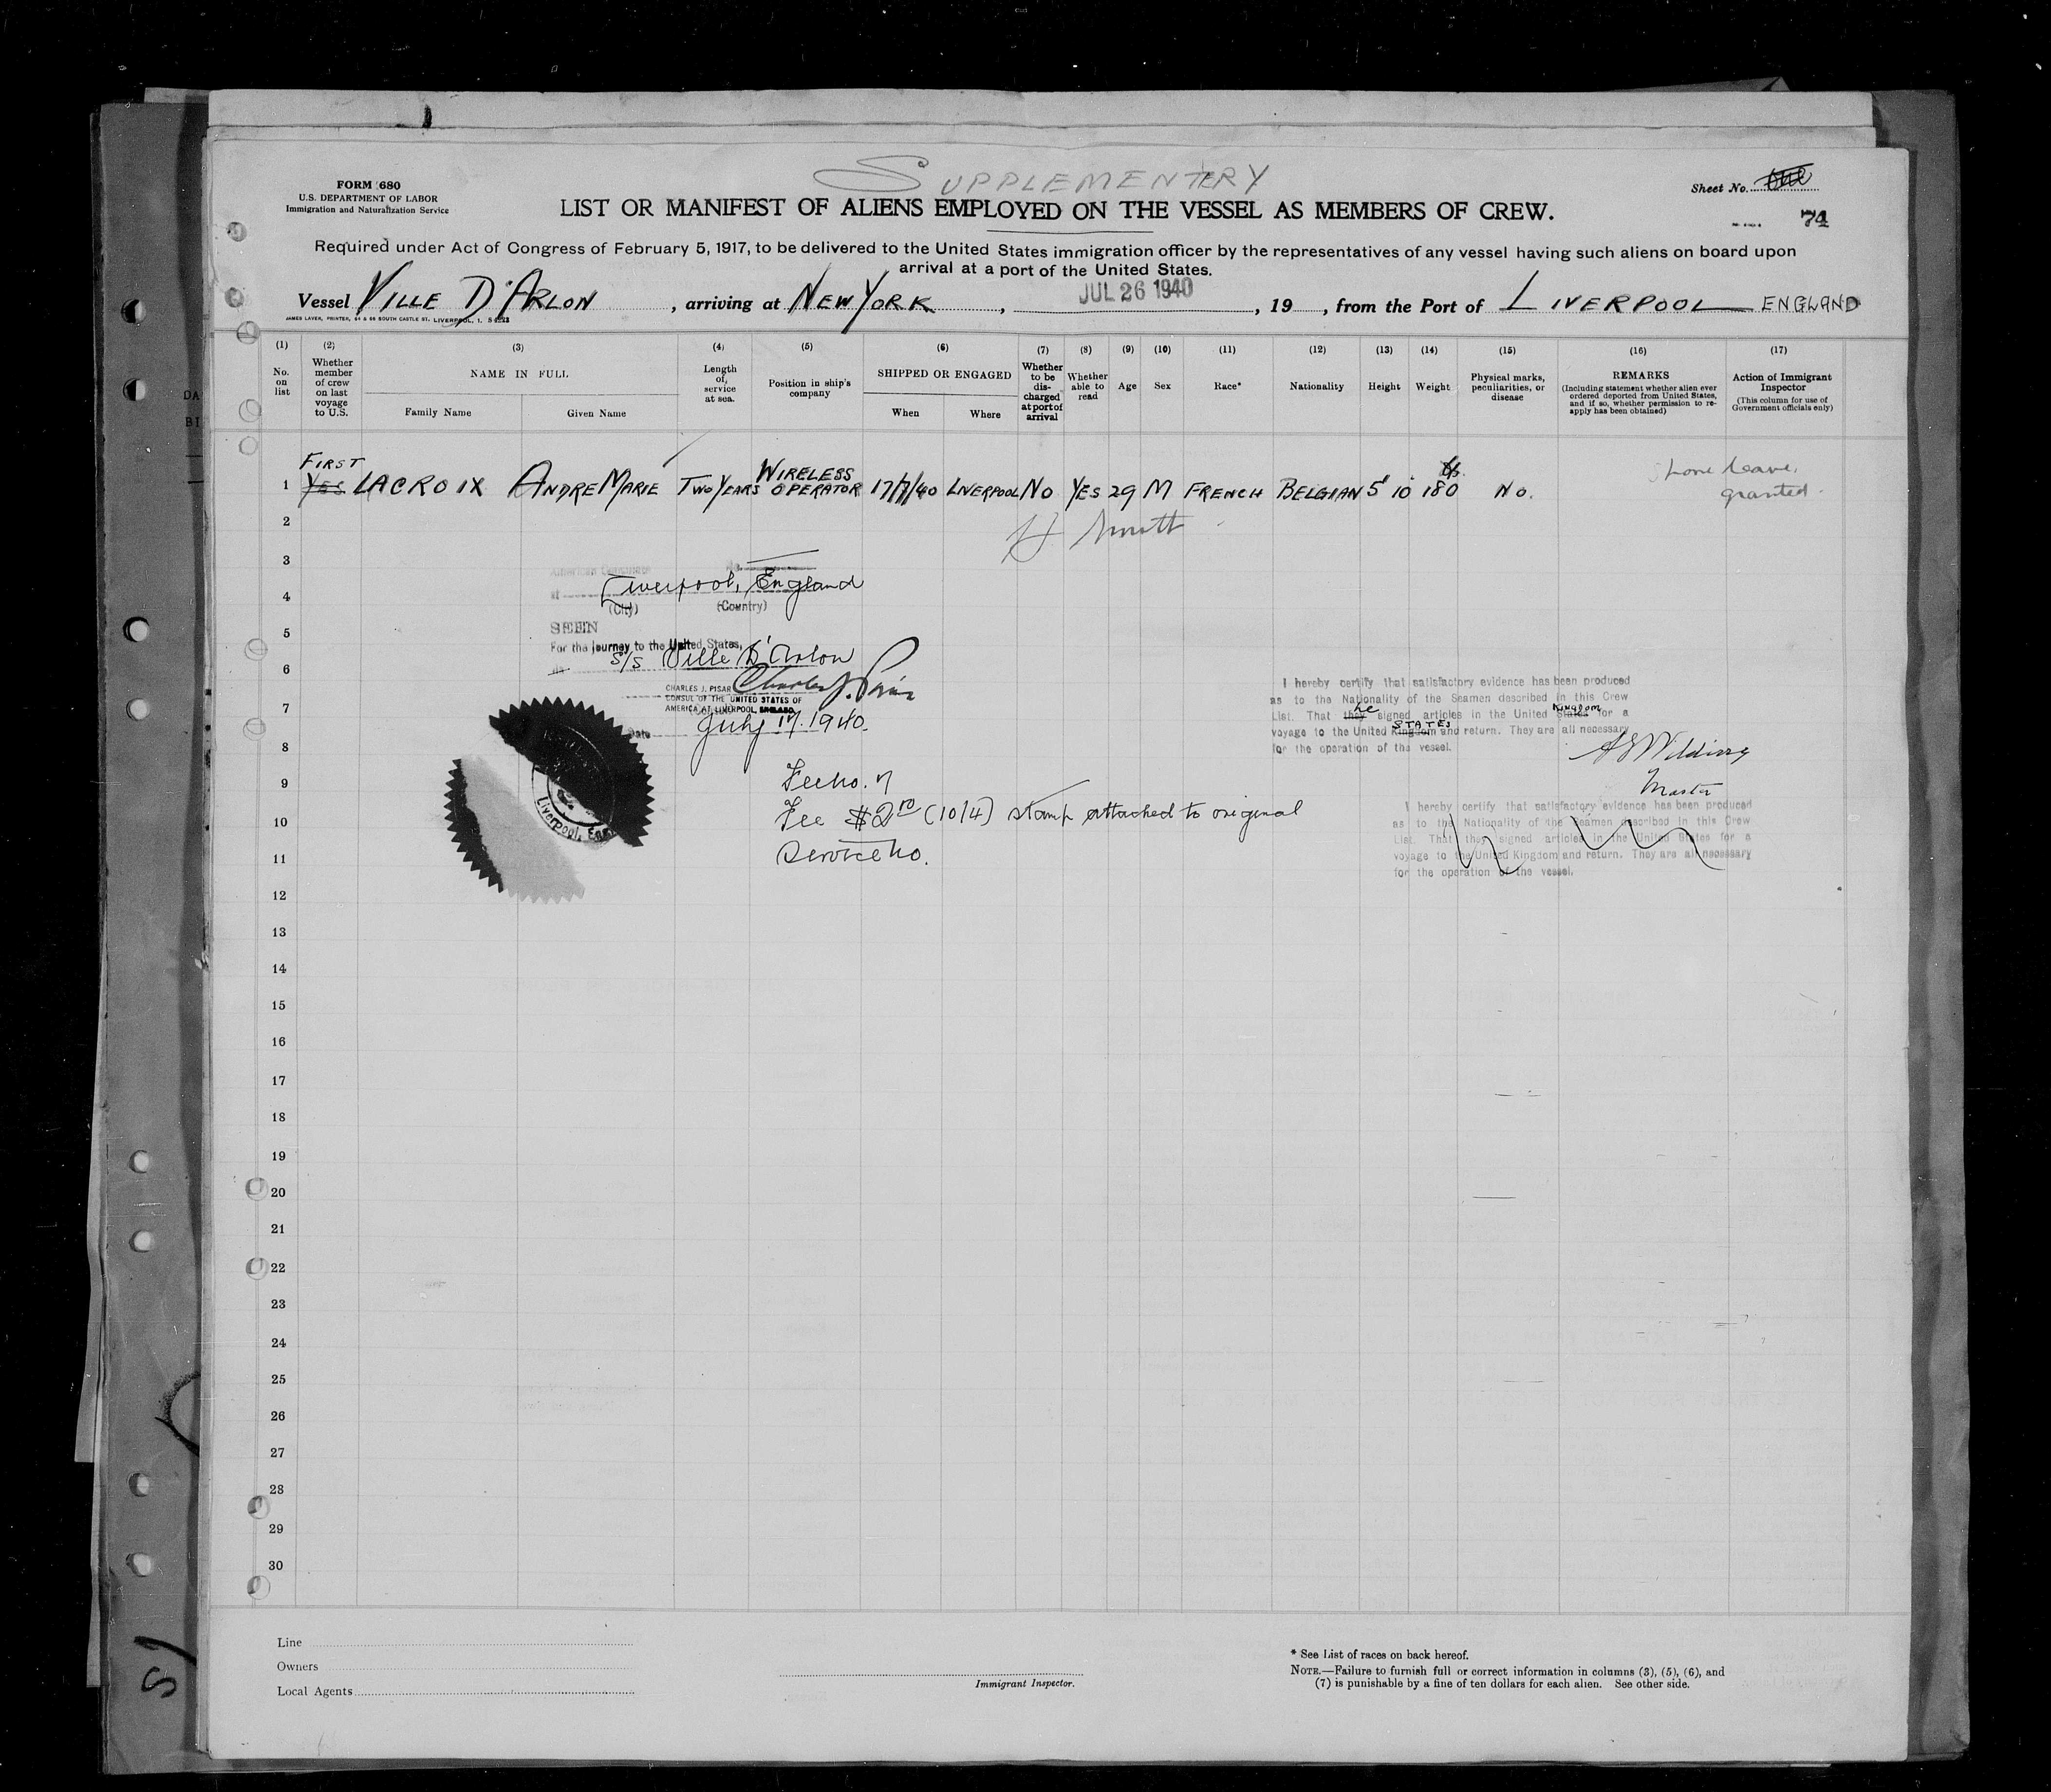 SUPPLEMENTERY
FORM 680
U.S. DEPARTMENT OF LABOR
Immigration and Naturalization Service
Sheet No.
74
LIST OR MANIFEST OF ALIENS EMPLOYED ON THE VESSEL AS MEMBERS OF CREW.
Required under Act of Congress of February 5, 1917, to be delivered to the United States immigration officer by the representatives of any vessel having such aliens on board upon
arrival at a port of the United States.
Vessel VILLE D'ARLON, arriving at NEW YORK, JUL 26 1940, 19, from the Port of LIVERPOOL ENGLAND
JAMES LAVER, PRINTER, 64 & 66 SOUTH CASTLE ST. LIVERPOOL, 1.
(1) (2) (3) (4) (5) (6) (7) (8) (9) (10) (11) (12) (13) (14) (15) (16) (17)
No. on list
Whether member of crew on last voyage to U.S.
NAME IN FULL
Family Name
Given Name
Length of service at sea.
Position in ship's company
SHIPPED OR ENGAGED
When
Where
Whether to be discharged at port of arrival
Whether able to read
Age
Sex
Race*
Nationality
Height
Weight
Physical marks, peculiarities, or disease
REMARKS
(Including statement whether alien ever ordered deported from United States, and if so, whether permission to re-apply has been obtained)
Action of Immigrant Inspector
(This column for use of Government officials only)
FIRST
1 YES LACROIX ANDRE MARIE TWO YEARS WIRELESS OPERATOR 17/7/40 LIVERPOOL NO YES 29 M FRENCH BELGIAN 5' 10 180 No. Shore leave granted.
2
3
American Consulate
4
at Liverpool, England
(City) (Country)
5
SEEN
For the journey to the United States,
6
S/S Ville D'Arlon
CHARLES J. PISAR
CONSUL OF THE UNITED STATES OF
AMERICA AT LIVERPOOL, ENGLAND.
7
Date July 17, 1940.
8
I hereby certify that satisfactory evidence has been produced
as to the Nationality of the Seamen described in this Crew
List. That they he signed articles in the United States Kingdom for a
voyage to the United Kingdom STATES and return. They are all necessary
for the operation of the vessel.
A S Wilding
Master
9
Fee No. 7
10
Fee $2.00 (10/4) stamp attached to original
Liverpool, Eng
11
Service No.
I hereby certify that satisfactory evidence has been produced
as to the Nationality of the Seamen described in this Crew
List. That they signed articles in the United States for a
voyage to the United Kingdom and return. They are all necessary
for the operation of the vessel.
12
13
14
15
16
17
18
19
20
21
22
23
24
25
26
27
28
29
30
Line
Owners
Local Agents
Immigrant Inspector.
* See List of races on back hereof.
NOTE.—Failure to furnish full or correct information in columns (3), (5), (6), and
(7) is punishable by a fine of ten dollars for each alien. See other side.